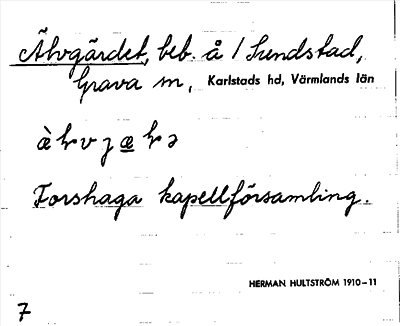 Älvgärdet, beb. å 1
Grava sn, Karlstads hd, Värmlands län
Forshaga kapellförsamling.
HERMAN HULTSTRÖM 1910–11
7